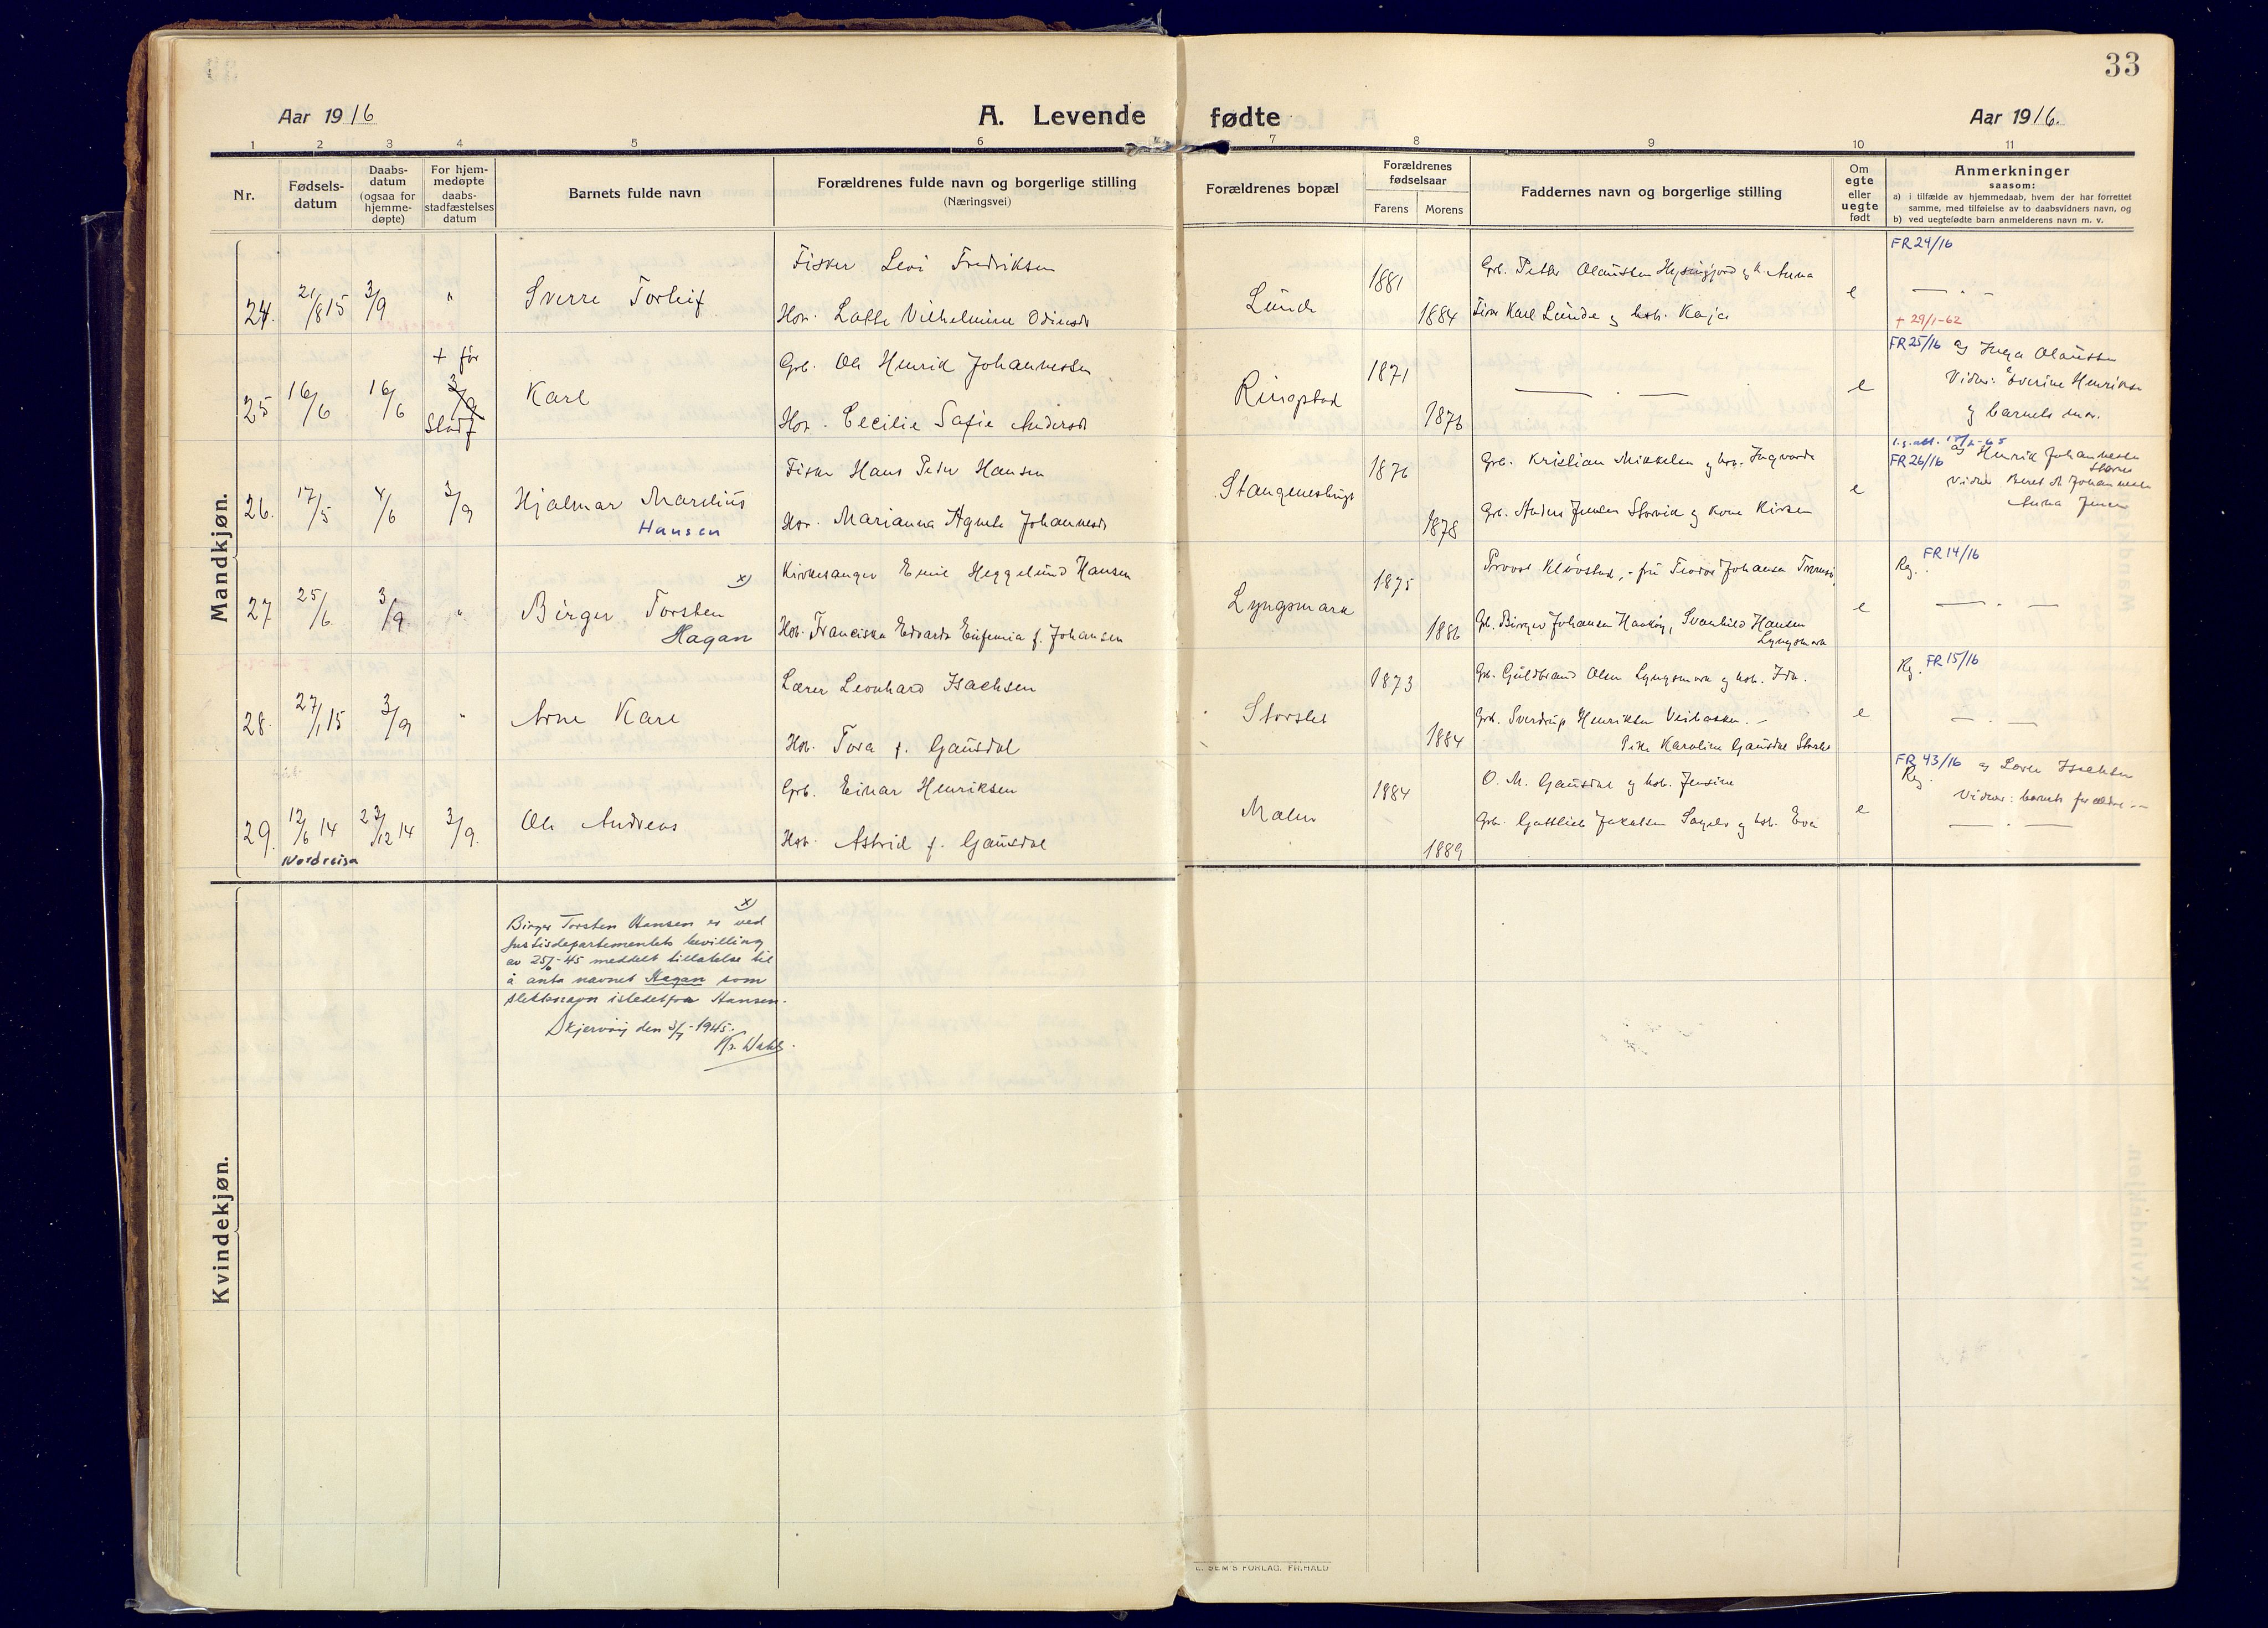 33
Aar 1916
A. Levende fødte
Aar 1916.
1 2 3 4 5 6 7 8 9 10 11
Nr.
Fødsels-
datum
Daabs-
datum
(ogsaa for
hjemme-
døpte)
For hjem-
medøpte
daabs-
stadfæstelses
datum
Barnets fulde navn
Forældrenes fulde navn og borgerlige stilling
(Næringsvei)
Forældrenes bopæl
Forældrenes
fødselsaar
Farens Morens
Faddernes navn og borgerlige stilling
Om
egte
eller
uegte
født
Anmerkninger
saasom:
a) i tilfælde av hjemmedaab, hvem der har forrettet
samme, med tilføielse av to daabsvidners navn, og
b) ved uegtefødte barn anmelderens navn m. v.
Mandkjøn.
24. 21/8 15 3/9 " Sverre Torleif
Fisker Levi Fredriksen
Hon. Lotte Vilhelmine Odinsdt
Lunde 1881 1884
Grb. Petter Olaussen og k. Anna
Fisk. Karl Lunde og hob. Kaja
e
FR 24/16
+ 29/1-62
25 16/6 16/6 + før 3/9 Stadf
Karl
Grb. Ole Henrik Johannessen
Hon. Cecilie Sofie Andersdt
Ringstad 1871 1876
e
FR 25/16 av Inga Olaussen
Vidner: Severine Henriksen
og barnets mor.
26. 17/5 4/6 3/9
Hjalmar Mardius
Hansen
Fisker Hans Peder Hansen
Hon. Marianna Agnete Johannesdt
Stangnesbugt 1876 1878
Grb. Kristian Mikkelsen og hob. Ingvarda
Grb. Anders Jensen Storvik og kone Kirsten
e
FR 26/16 av Henrik Johannessen
Storvik
Vidner Beret M Johannessen
Anna Jensen
27 25/6 3/9 "
x)
Birger Torsten
Hagan
Kirkesanger Emil Heggelund Hansen
Hob. Franciska Edvarda Eufemia f. Johansen
Lyngsmark 1875 1886
Provst Kløvstad, - frú Teodor Johansen Tromsø,
Grb. Birger Johansen Havkøy, Svanhild Hansen
Lyngsmark
e
Reg. FR 14/16
28. 27/1 15 3/9 "
Arne Karl
Lærer Leonhard Isachsen
Hob. Tora f. Gausdal
Storslet 1873 1884
Grb. Guldbrand Olsen Lyngsmark og hob. Ida.
Grb. Sverdrup Henriksen Veibakken. -
Pike Karoline Gausdal Storslet
e
Reg. FR 15/16
29. 12/6 14 23/12 14 3/9.
Nordreisa
Ole Andreas
Grb. Einar Henriksen
Hob. Astrid f. Gausdal
Malen 1884 1889
O. M. Gausdal og hob. Jensine
Grb. Gottlieb Jakobsen Sappen og hob. Eva
e
FR 43/16 av Lærer Isachsen
Reg.
Vidner: barnets forældre --
Kvindekjøn.
x)
Birger Torsten Hansen er ved
Justisdepartementets bevilling
av 25/6-45 meddelt tillatelse til
å anta navnet Hagan som
slektsnavn istedetfor Hansen.
Skjervøy den 3/7-1945.
Kr. Wahl.
E. SEM'S FORLAG. FR.HALD